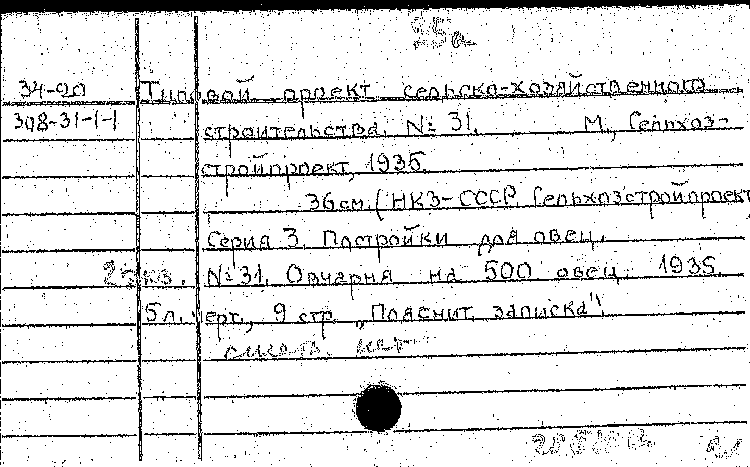 25а
34-20 Типовой проект сельско-хозяйственного
308-31-1-1 строительства. № 31. М., Сельхоз-
стройпроект, 1935.
36 см. (НКЗ-СССР. Сельхозстройпроект
Серия 3. Постройки для овец.
2 экз. №31. Овчарня на 500 овец. 1935.
5 л. черт., 9 стр. „Пояснит. записка".
нет